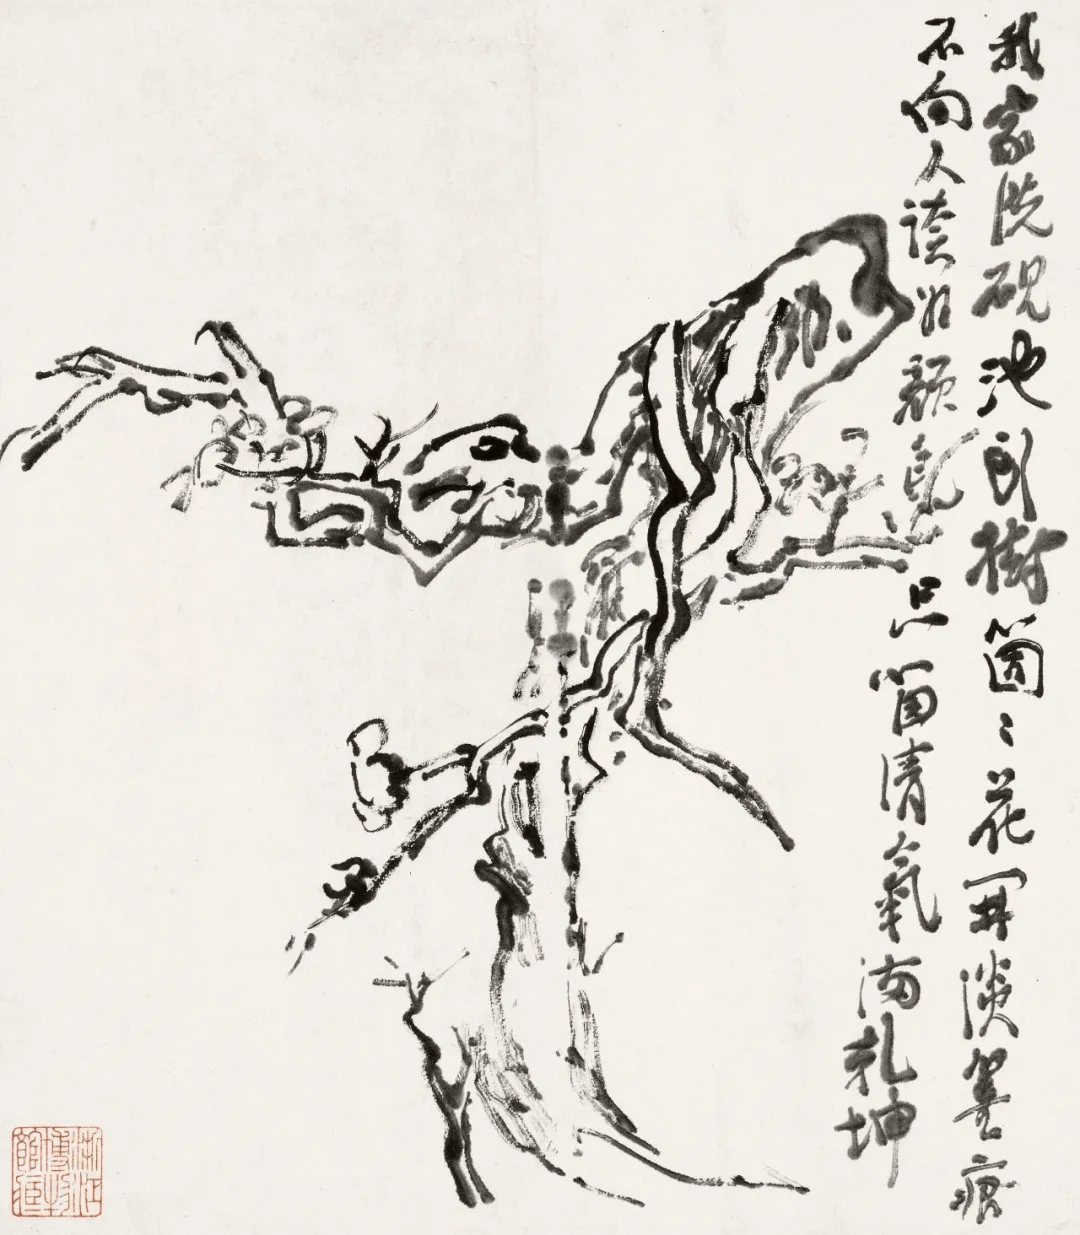 我家洗硯池頭樹箇〻花開淡墨痕
不向人誇好顏色只留清氣滿乾坤
浙江
博物
館